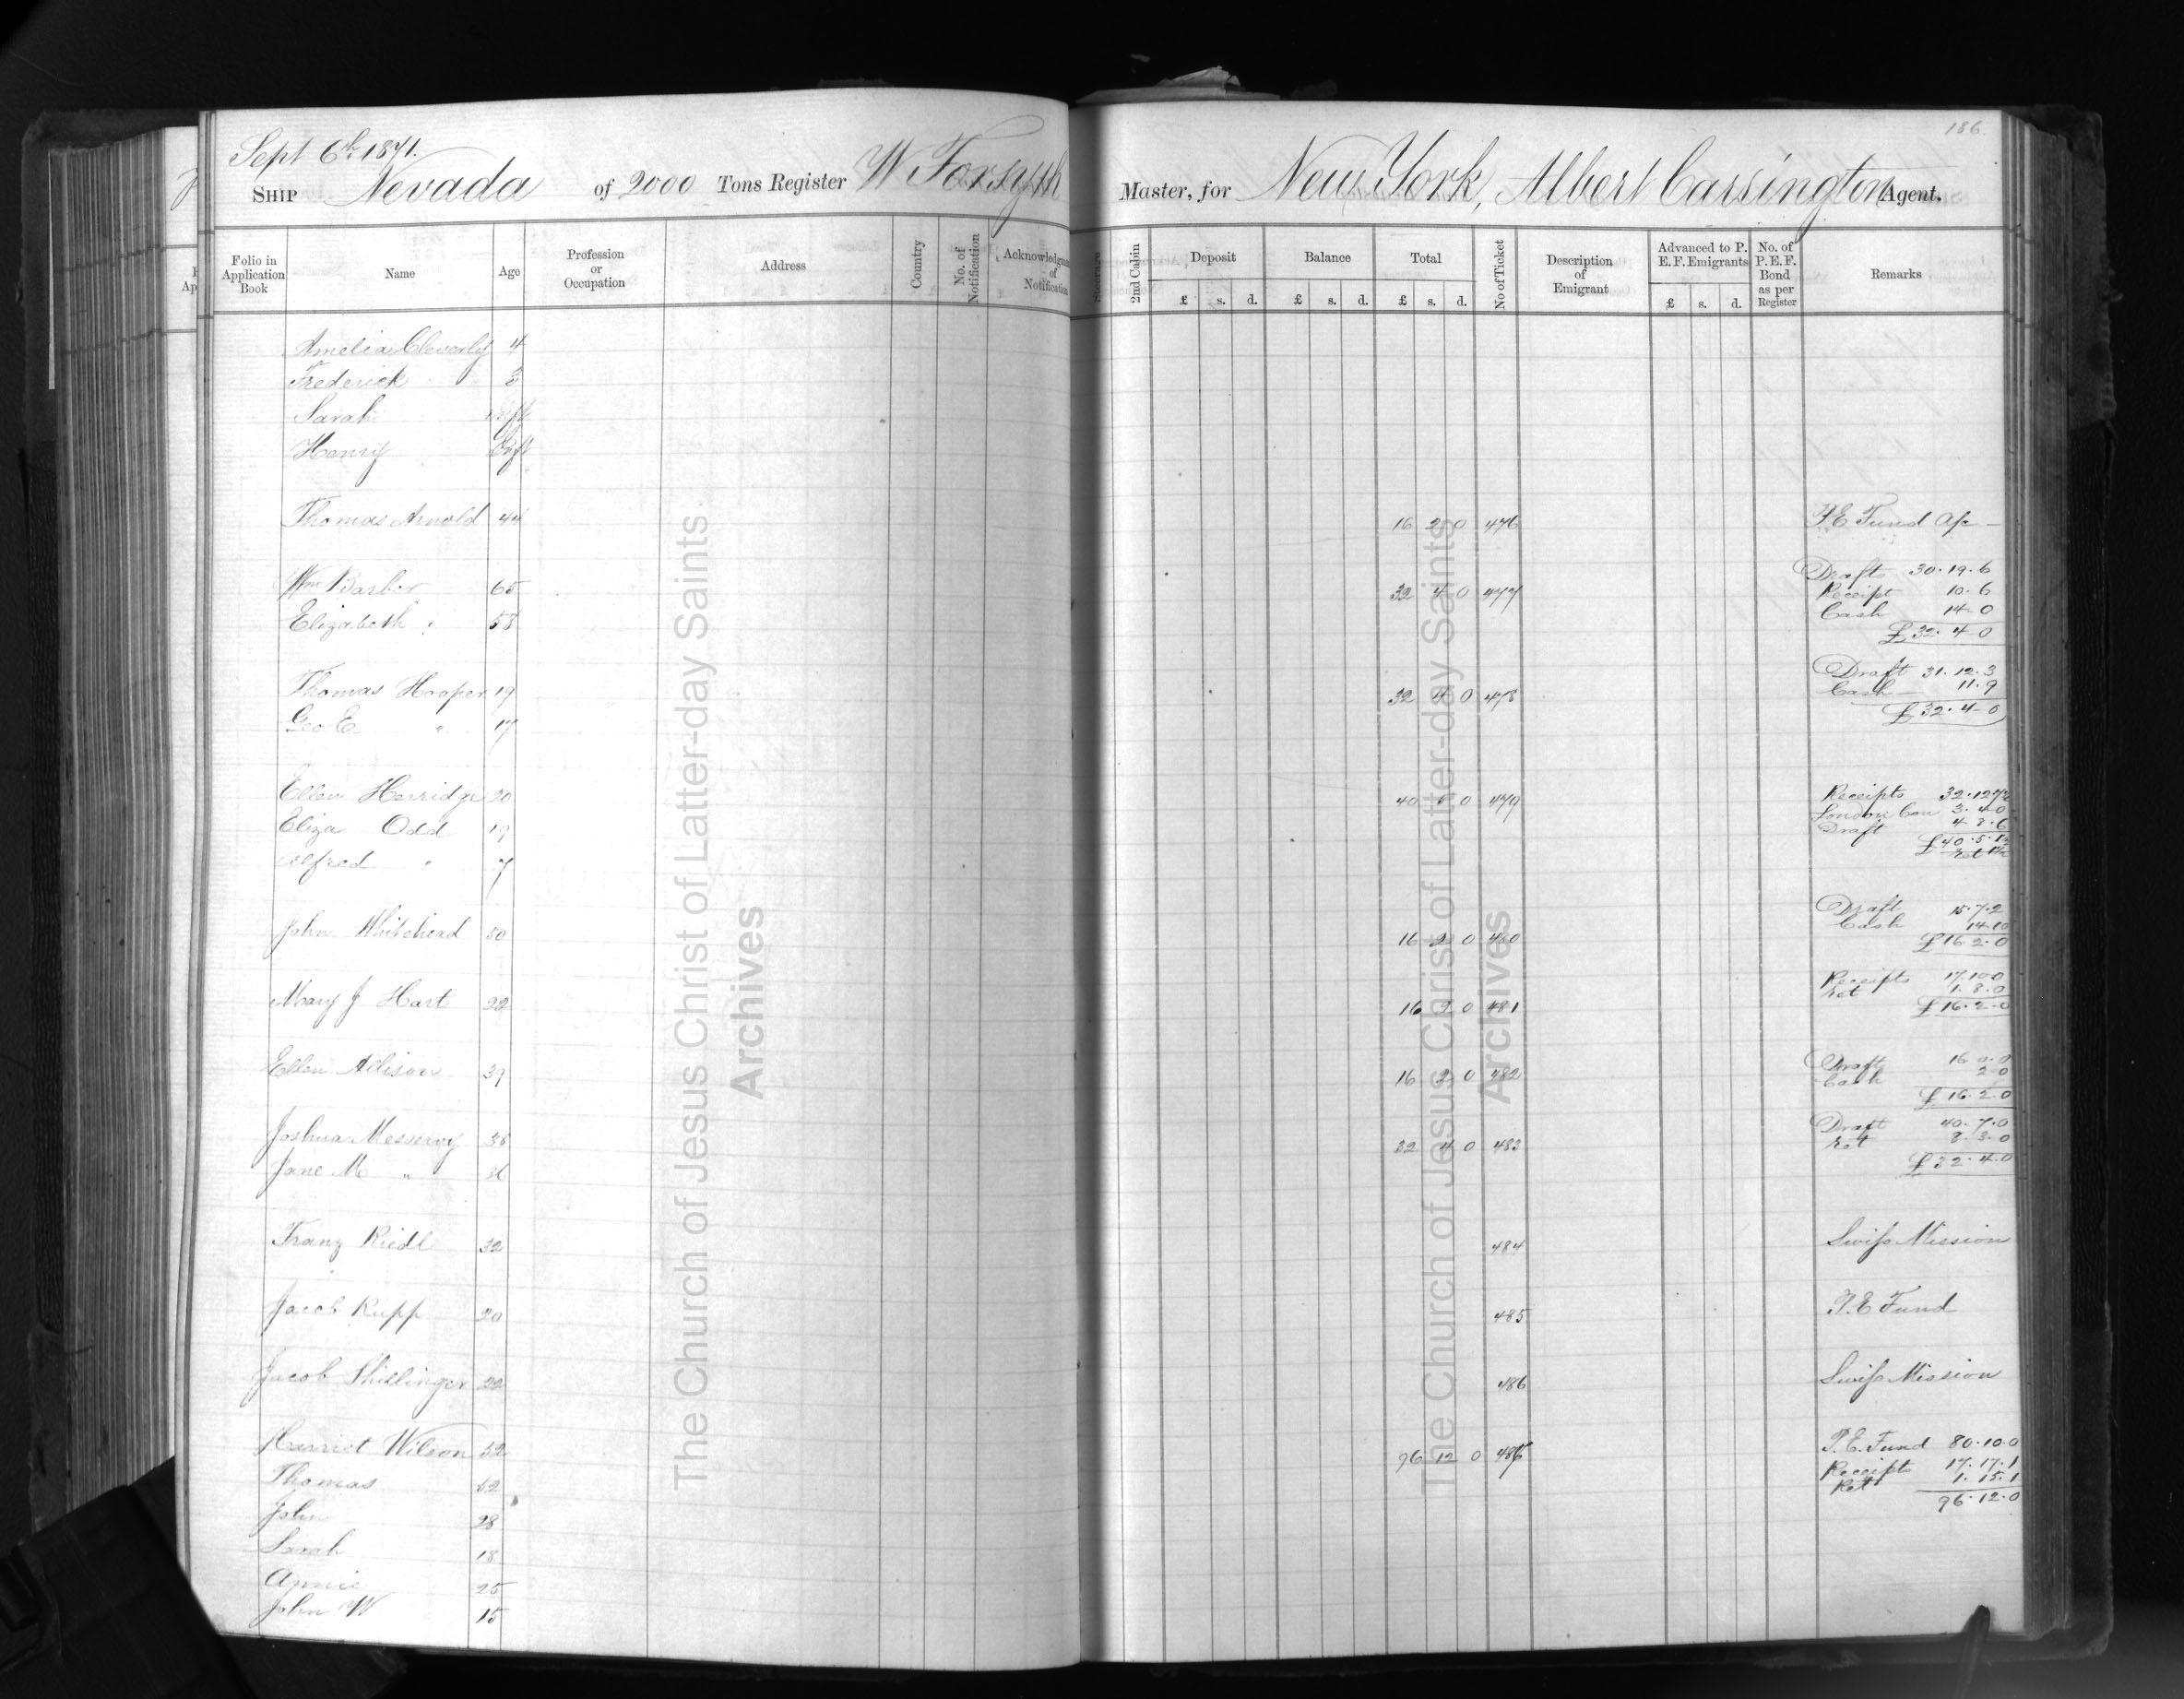 186
Sept 6th 1871.
Ship Nevada of 2000 Tons Register W Forsyth Master, for New York, Albert Carrington Agent.
Folio in Application Book Name Age Profession or Occupation Address Country No. of Notification Acknowledgment of Notification Steerage 2nd Cabin Deposit Balance Total No of Ticket Description of Emigrant Advanced to P. E. F. Emigrants No. of P. E. F. Bond as per Register Remarks
£ s. d. £ s. d. £ s. d. £ s. d.
Amelia Cleverly 4
Frederick 3
Sarah Inft
Henry Inft
Thomas Arnold 44 16 2 0 476 P.E Fund a/c
Wm Barber 65 32 4 0 477 Drafts 30.19.6
Receipt 10.6
Elizabeth " 58 Cash 14 0
£32.4 0
Thomas Hooper 19 32 4 0 478 Draft 31.12.3
Cash 11.9
Geo E " 17 £32.4-0
Ellen Herridge 20 40 5 0 479 Receipts 32.12.7½
London Con 3.4.0
Eliza Odd 19 Draft 4.8.6
£40.5.1½
Alfred " 7 ret 1½
John Whitehead 50 16 2 0 480 Draft 15.7.2
Cash 14.10
£16.2.0
Mary J Hart 22 16 2 0 481 Receipts 17.10.0
ret 1.8.0
£16.2.0
Ellen Allison 39 16 2 0 482 Draft 16 0.0
Cash 2 0
£16.2.0
Joshua Messervy 38 32 4 0 483 Draft 40.7.0
ret 8.3.0
Jane M " 36 £32.4.0
Franz Riedl 32 484 Swiss Mission
Jacob Rupp 20 485 P.E Fund
Jacob Shillinger 22 486 Swiss Mission
Harriet Wilson 52 96 12 0 487 P.E. Fund 80.10.0
Receipts 17.17.1
Thomas 52 Ret 1.15.1
96.12.0
John 28
Sarah 18
Annie 25
John W 15
The Church of Jesus Christ of Latter-day Saints
Archives
The Church of Jesus Christ of Latter-day Saints
Archives